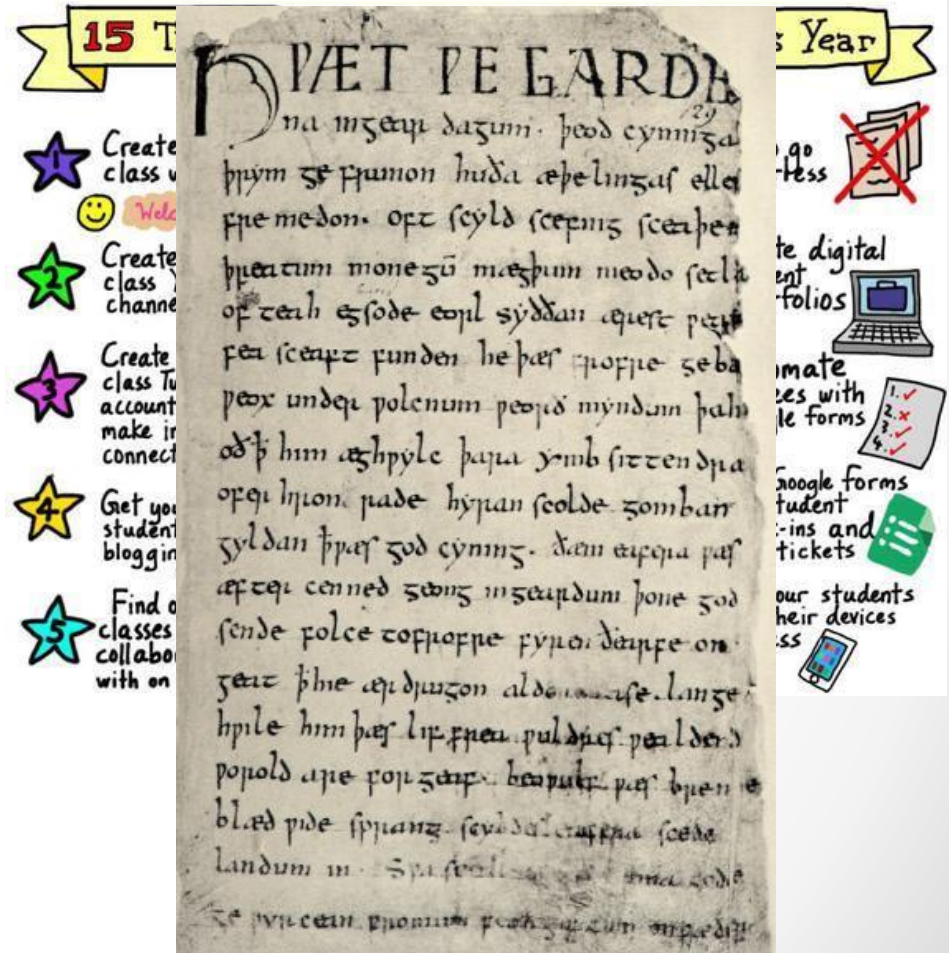 15 T
s Year
1
Create
class w
Welc
2
Create
class Y
channe
3
Create
class Tu
account
make in
connect
4
Get you
student
bloggin
5
Find o
classes
collabo
with on
HǷÆT ǷE GARDE
129
na ingear dagum. þeod cyninga
þrym ge frunon huða æþelingas elle
fremedon. oft scyld scefing sceaþe
þreatum monegū mægþum meodo setla
of teah egsode eorl syððan ærest
fea sceaft funden he þæs frofre geba
ƿeox under ƿolcnum ƿeorð myndum þah
oð ꝥ him æghƿylc þara ymb sittendra
ofer hron rade hyran scolde gomban
gyldan ꝥ ƿæs god cyning. ðæm eafera ƿæs
æfter cenned geong ingeardum þone god
sende folce tofrofre fyren ðearfe on
geat ꝥ hie ær drugon lange
hƿile him þæs lif frea ƿuldres ƿealdend
ƿorold are for geaf. beoƿulf ƿæs breme
blæd ƿide sprang scede
landum in. Sƿa
ge ƿyrcean fromum
go
rless
te digital
ent
folios
omate
es with
le forms
1. ✓
2. x
3. ✓
4. ✓
Google forms
tudent
-ins and
tickets
our students
heir devices
ss